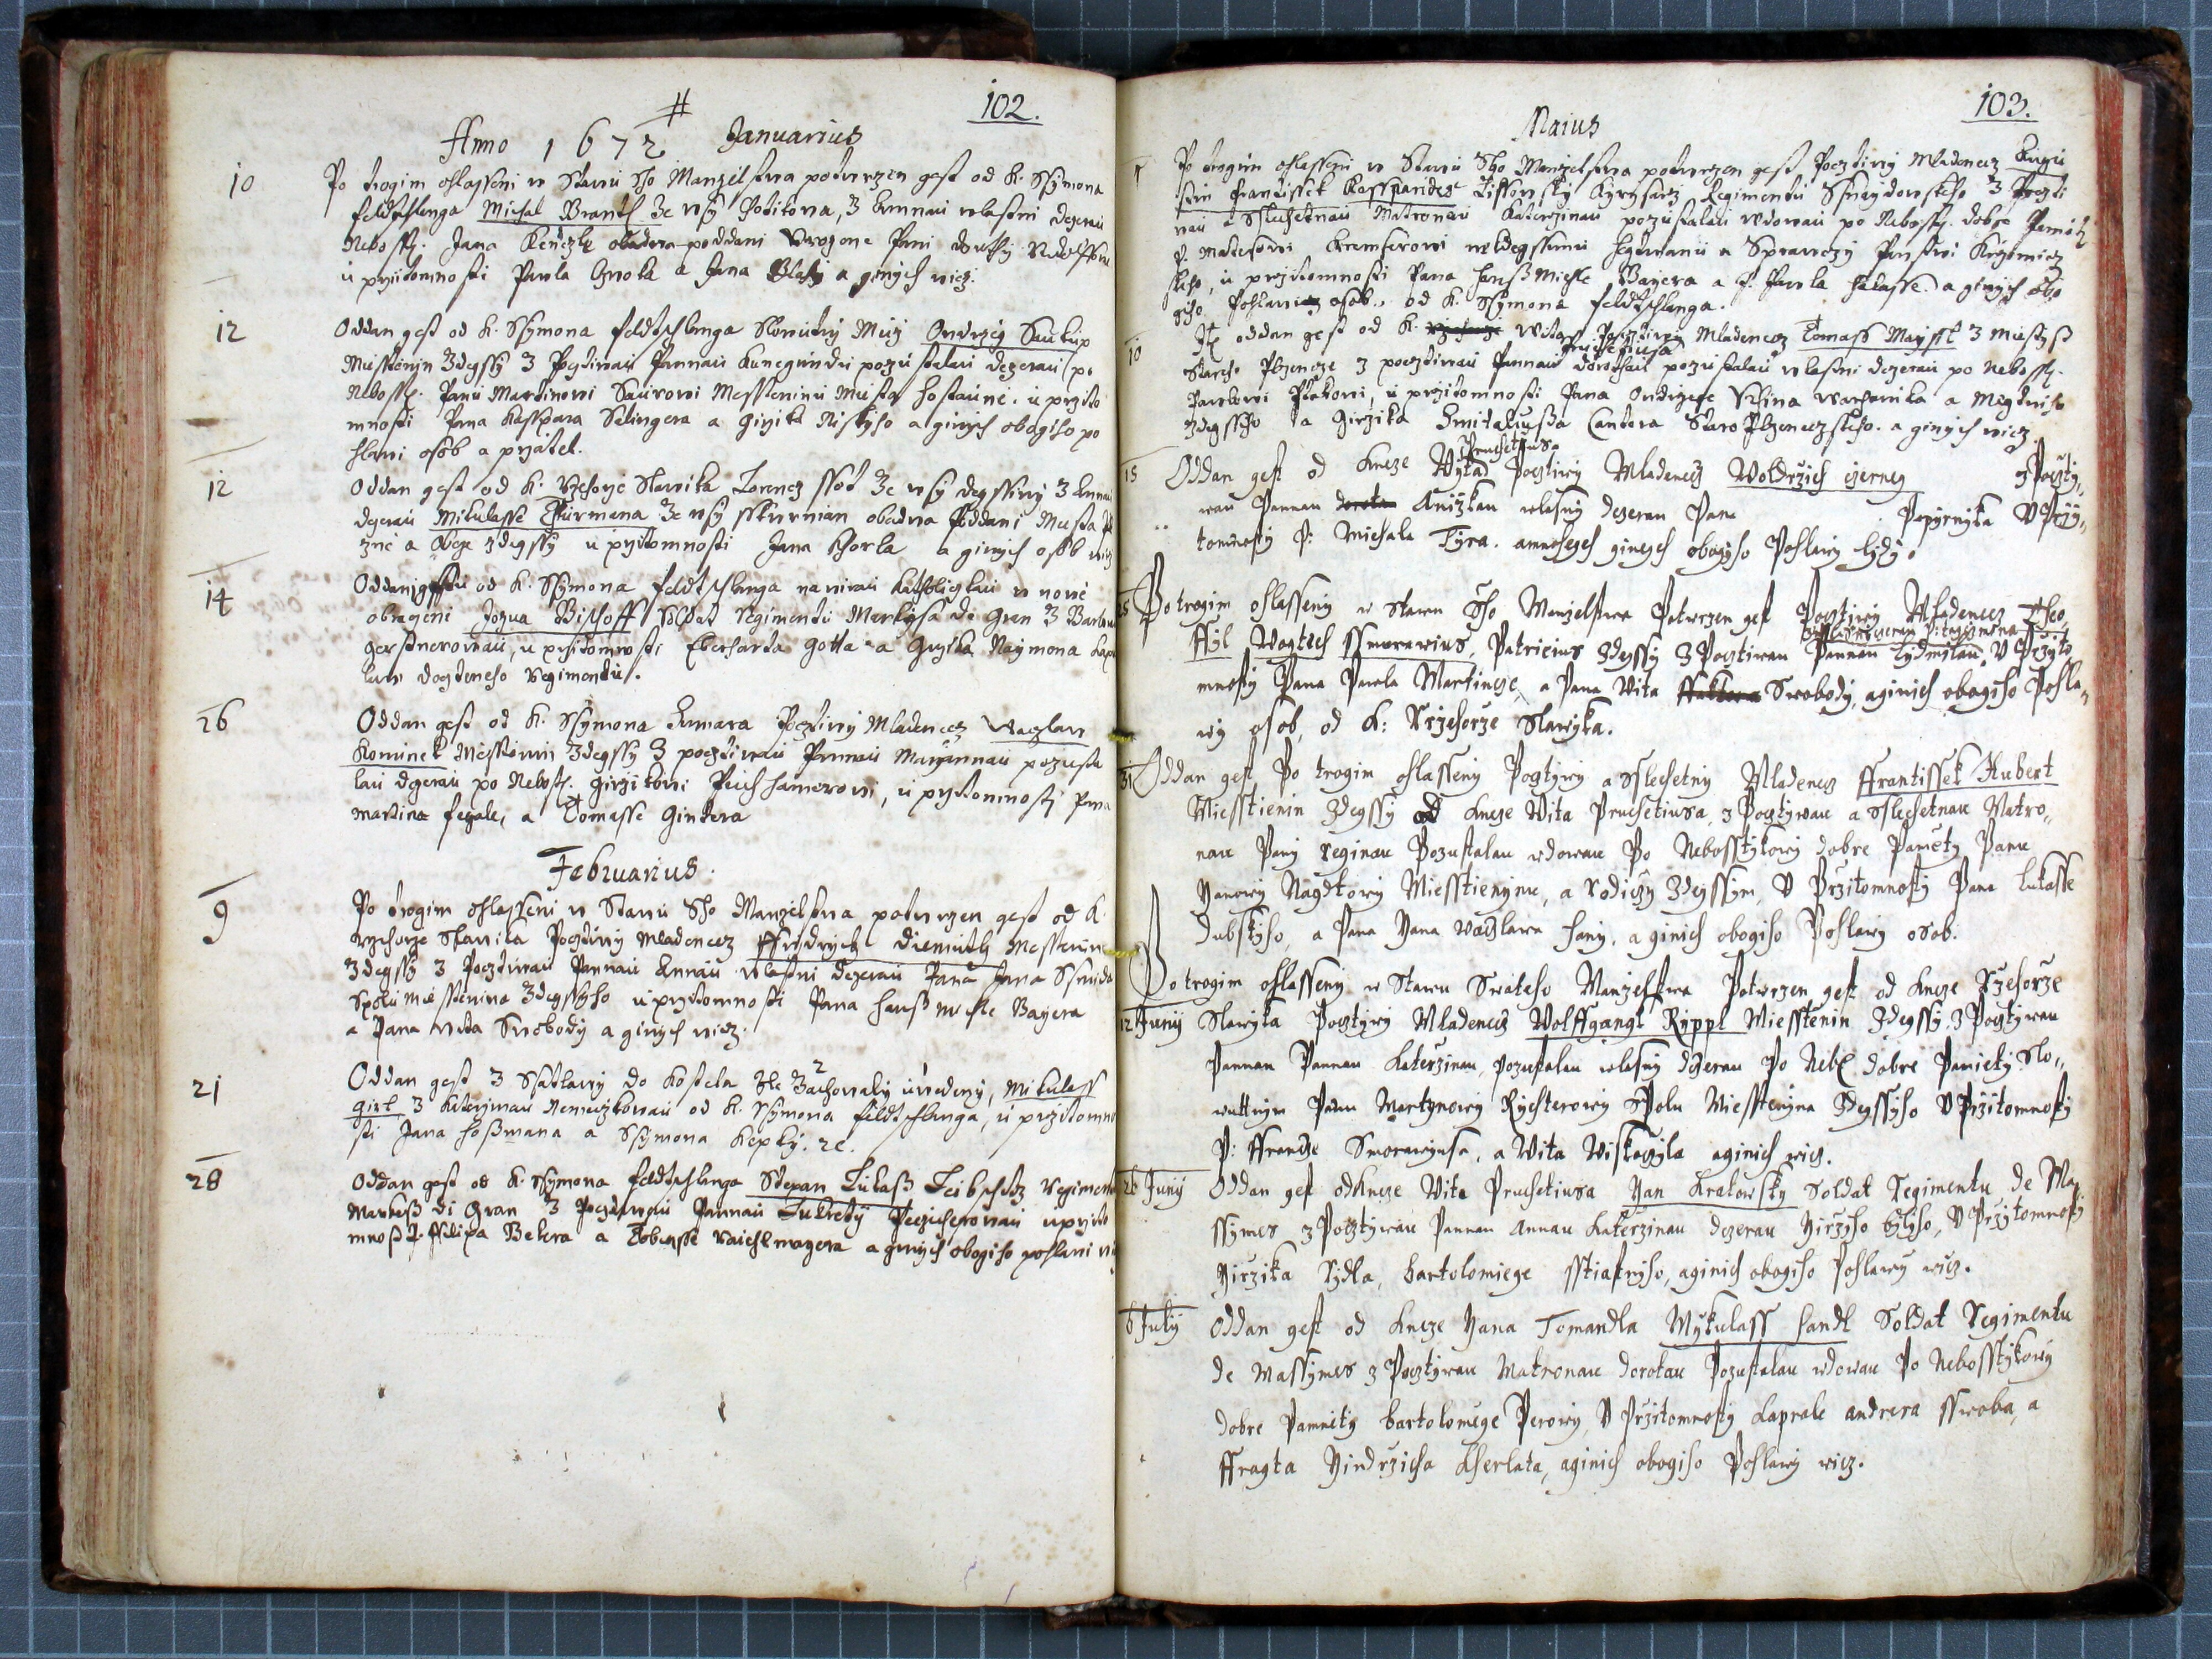 102.
Anno 1672 Januarius
10
Po trogim ohlasseni w Stawu Sho Manzelstwa potwrzen gest od K. Ssymona
feldtschlanga Michal Branth Ze wsy Potitowa, Z Annau wlastni dczerau
Nebosst. Jana obadwa poddani Urozone Pani
u przitomnosti Pawla a Jana a ginych wicz.
12
Oddan gest od K. Ssymona feldtschlanga Slowutny Muz Ondrzeg Saukup
Miesstenin Zdegssy Z Pocztiwau Pannau Kunegundu pozustalau dczerau po
Nebosst. Panu Martinowi Saurowi Messteninu Miesta hostaune. u przito
mnosti Pana Kasspara Selingera a Girzika Niskyho a ginych obogiho po
hlawi osob a przatel.
12
Oddan gest od K. Rzehorze Slawika Lorencz ssot Ze wsy degssiny Z Anna
dczerau Mikulasse Thurmana Ze wsy sskurnian obadwa Poddani Miesta Pl
zně a Obcze zdegssy u przitomnosti Jana Khorla a ginych osob wicz
14
Oddani gssau od K. Ssymona feldtschlanga na wirau Katholiczkau w nowě
obrageni Jozua Bischoff Soldat Regimentu Markysa de Gran Z Barbor
gerstnerowau, u przitomnosti Eberharda Gotta a Girzika Naymona Kapr
law dogdeneho Regimentu.
26
Oddan gest od K. Ssymona Humara Pocztiwy Mladenecz Waczlaw
Kominek Messtenin Zdegssy Z pocztiwau Pannau Marjannau pozusta
lau dczerau po Nebost. Girzikowi Puchhamerowi, u przitomnosti Pana
Martina fegale, a Tomasse Gintera
Februarius.
9
Po trogim ohlasseni w Stawu Sho Manzelstwa potwrzen gest od K.
rzehorze Slawika Pocztiwy Mladenecz ffridrych Diemuth Messtenin
Zdegssy Z Pocztiwau Pannau Annau wlastni dczerau Pana Jana Ssmida
Spolu miesstenina Zdegssyho u przitomnosti Pana Hanß Michle Bayera
a Pana Wita Swobody a ginych wicz.
21
Oddan gest Z Ssatlawy do Kostela Zle Zachowaly uwedeny, Mikulass
Girl Z Katerzinau Nemeczkowau od K. Ssymona feldtschlanga, u przitomno
sti Jana Hoßmana a Ssymona Kepky. 2c.
28
Oddan gest od K. Ssymona feldtschlanga Stepan Lukaß Leibschitz Regimentu
Markeß di Gran Z Pocztiwau Pannau Lukrety u przito
mnosti P. ffilipa Bekera a Tobiasse Raichlmayera a ginych obogiho pohlawi wicz
103.
Maius
Po trogim ohlasseni w Stawu Sho Manzelstwa potwrzen gest Pocztiwy Mladenecz
Frantissek Kassparides Lissowsky Kyrysarz Regimentu Z Poczti
wau a Slechetnau Matronau Katerzinau pozustalau wdowau po Nebosst. dobre Pamieti
P. Matiesowi Kramserowi neydegssimu hegtmanu a Sprawczy Panstwi
skeho, u przitomnosti Pana Hanß Michle Bayera a P. Pawla Halasse a ginych obo
giho Pohlawi osob. od K. Ssymona feldtschlanga.
10
It. oddan gest od K. Wita Pruchetiusa Pocztiwy Mladenecz Tomass Maysst Z Miestys
Stareho Plzencze Z pocztiwau Pannau Dorothau pozustalau wlastni dczerau po Nebosst.
Pawlowi Ptakowi, u przitomnosti Pana Ondrzege Uhlina warhanika a Megtniho
Zdegssiho a Girzika Smitaliussa Cantora Staro Plzeneczskeho. a ginych wicz
15
Oddan gest od Kneze Wyta Pruchetiusa Pocztiwy Mladenecz Woldrzich czerney z Poczty
wau Pannau Anizkau wlasny dczerau Pana Papyrnyka U Przy
tomnosty P. Michala Tyra. a mnoheych gineych obogiho Pohlawy lydy.
25
Po trogim ohlasseny w stawu Sho Manzelstwa Potwrzen gest Pocztiwy Mladenecz Theo
ffyl Wogtiech Ssmerawius, Patricius Zdegssy Z Pocztiwau Pannau Lydmilau, U Przito
mnosty Pana Pawla Martincze, a Pana Wita Swobody, a ginich obogiho Pohla
wy osob, od K: Rzehorze Slawyka.
31
Oddan gest Po trogim ohlasseny Pocztywy a Sslechetny Mladenecz ffrantissek Hubert
Miesstienin Zdegssy od Kneze Wita Pruchetiusa, z Pocztywau a Sslechetnau Matro
nau Pany Reginau Pozustalau wdowau Po Nebosstykowy dobre Paměty Panu
Yanowy Nagdkowy Miesstienynu, a rodiczy Zdegssym, U Przitomnosty Pana Lukasse
Dubskyho, a Pana Yana waczlawa hany, a ginich obogiho Pohlawy osob.
12 Juny
Po trogim ohlasseny w Stawu Swateho Manzelstwa Potwrzen gest od Kneze Rzehorze
Slawyka Pocztywy Mladenecz Wolffgangt Ryppl Miesstenin Zdegssy, Z Pocztywau
Pannau Pannau Katerzinau, pozustalau wlasny dczerau Po Neb. dobre Pamiety Slo
wuttnym Panu Martynowy Rychterowy Spolu Miesstenyna Zdegssyho U Przitomnosty
P: ffrancze Smerawyusa, a Wita Wiskoczyla a ginich wicz.
26 Juny
Oddan gest od Kneze Wita Pruchetiusa Yan Kratowsky Soldat Regimentu de Ma
ssymes z Pocztywau Pannau Annau Katerzinau dczerau Girzyho bylyho, U Przytomnosty
Girzika Rydla, bartolomiege sstiastnyho, a ginich obogiho Pohlawy wicz.
6 July
Oddan gest od Kneze Yana Tomandla Mykulass handl Soldat Regimentu
de Massymes z Pocztywau Matronau dorotau Pozustalau wdowau Po Nebosstykowy
dobre Pamiety bartolomiege Perowy, U Przitomnosty Kaprale andrera sswaba, a
ffragta Yindrzicha Kherlata, a ginich obogiho Pohlawy wicz.